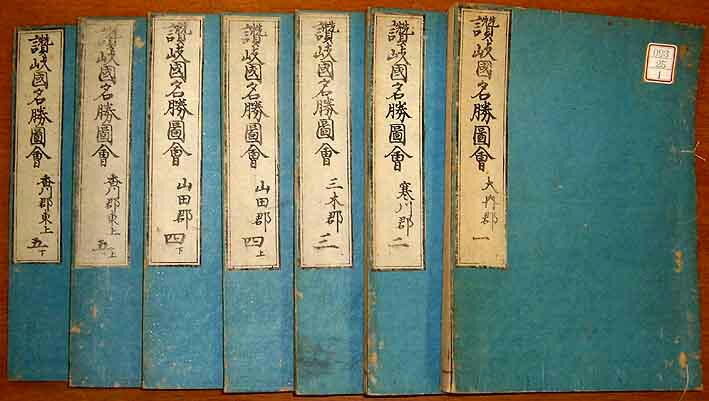 讃岐國名勝圖會 大内郡 一
093
25
1
讃岐國名勝圖會 寒川郡 二
讃岐國名勝圖會 三木郡 三
讃岐國名勝圖會 山田郡 四上
讃岐國名勝圖會 山田郡 四下
讃岐國名勝圖會 香川郡東上 五上
讃岐國名勝圖會 香川郡東上 五下